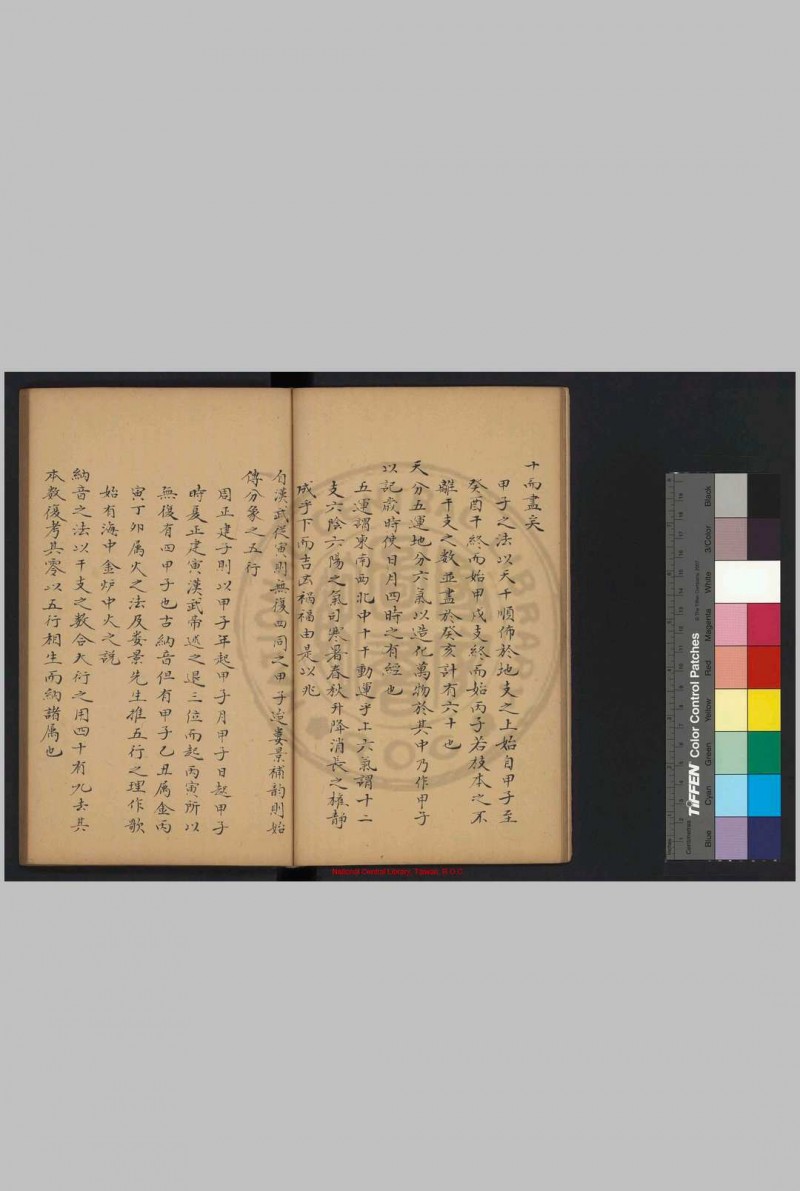 十而盡矣
甲子之法以天干順佈於地支之上始自甲子至
癸酉干終而始甲戌支終而始丙子若枝本之不
離干支之数並盡於癸亥計有六十也
天分五運地分六氣以造化萬物於其中乃作甲子
以記歲時使日月四時之有經也
五運謂東南西北中十干動運乎上六氣謂十二
支六陰六陽之氣司寒暑春秋升降消長之權静
成乎下而吉凶禍福由是以兆
自漢武從寅則無復四同之甲子迨婁景補韵則始
傳分象之五行
周正建子則以甲子年起甲子月甲子日起甲子
時夏正建寅漢武帝述之退三位而起丙寅所以
無復有四甲子也古納音但有甲子乙丑属金丙
寅丁卯属火之法及婁景先生推五行之理作歌
始有海中金炉中火之説
納音之法以干支之数合大衍之用四十有九去其
本数復考其零以五行相生而納諸属也
National Central Library, Taiwan, R.O.C
TIFFEN Color Control Patches
© The Tiffen Company, 2007
Centimetres
Blue
Cyan
Green
Yellow
Red
Magenta
White
3/Color
Black